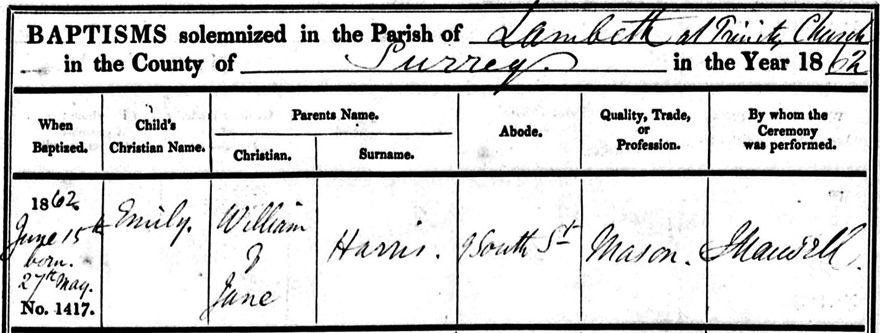 BAPTISMS solemnized in the Parish of Lambeth at Trinity Church
in the County of Surrey. in the Year 1862
When Baptized.
Child's Christian Name.
Parents Name.
Christian.
Surname.
Abode.
Quality, Trade, or Profession.
By whom the Ceremony was performed.
1862
June 15th
born.
27th May.
No. 1417.
Emily.
William
&
Jane
Harris.
9 South St
Mason.